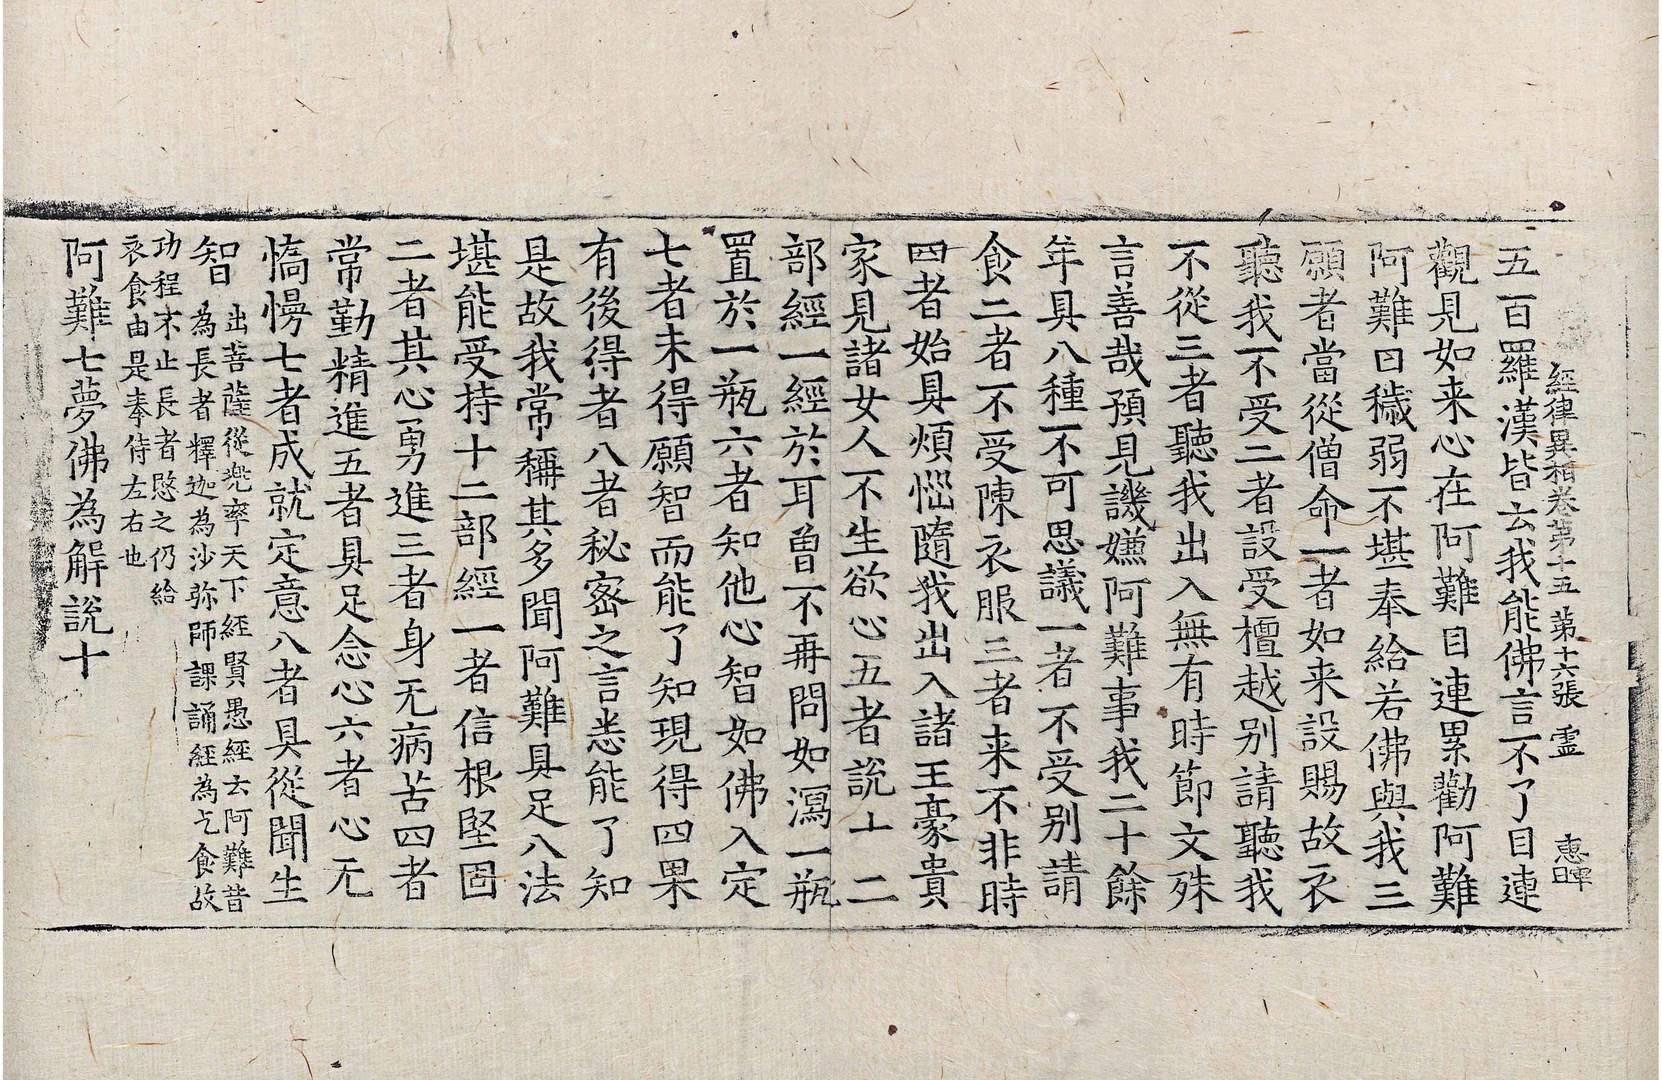 經律異相卷第十五 第十六張 霊 惠暉
五百羅漢皆云我能佛言不了目連
觀見如来心在阿難目連累勸阿難
阿難曰穢弱不堪奉給若佛與我三
願者當從僧命一者如来設賜故衣
聽我不受二者設受檀越别請聽我
不從三者聽我出入無有時節文殊
言善哉預見譏嫌阿難事我二十餘
年具八種不可思議一者不受别請
食二者不受陳衣服三者来不非時
四者始具煩惱隨我出入諸王豪貴
家見諸女人不生欲心五者說十二
部經一經於耳曽不再問如瀉一瓶
置於一瓶六者知他心智如佛入定
七者未得願智而能了知現得四果
有後得者八者秘密之言悉能了知
是故我常稱其多聞阿難具足八法
堪能受持十二部經一者信根堅固
二者其心勇進三者身无病苦四者
常勤精進五者具足念心六者心无
憍慢七者成就定意八者具從聞生
智 出菩薩從兠率天下經賢愚經云阿難昔
為長者釋迦為沙弥師課誦經為乞食故
功程不止長者愍之仍給
衣食由是奉侍左右也
阿難七夢佛為解說十